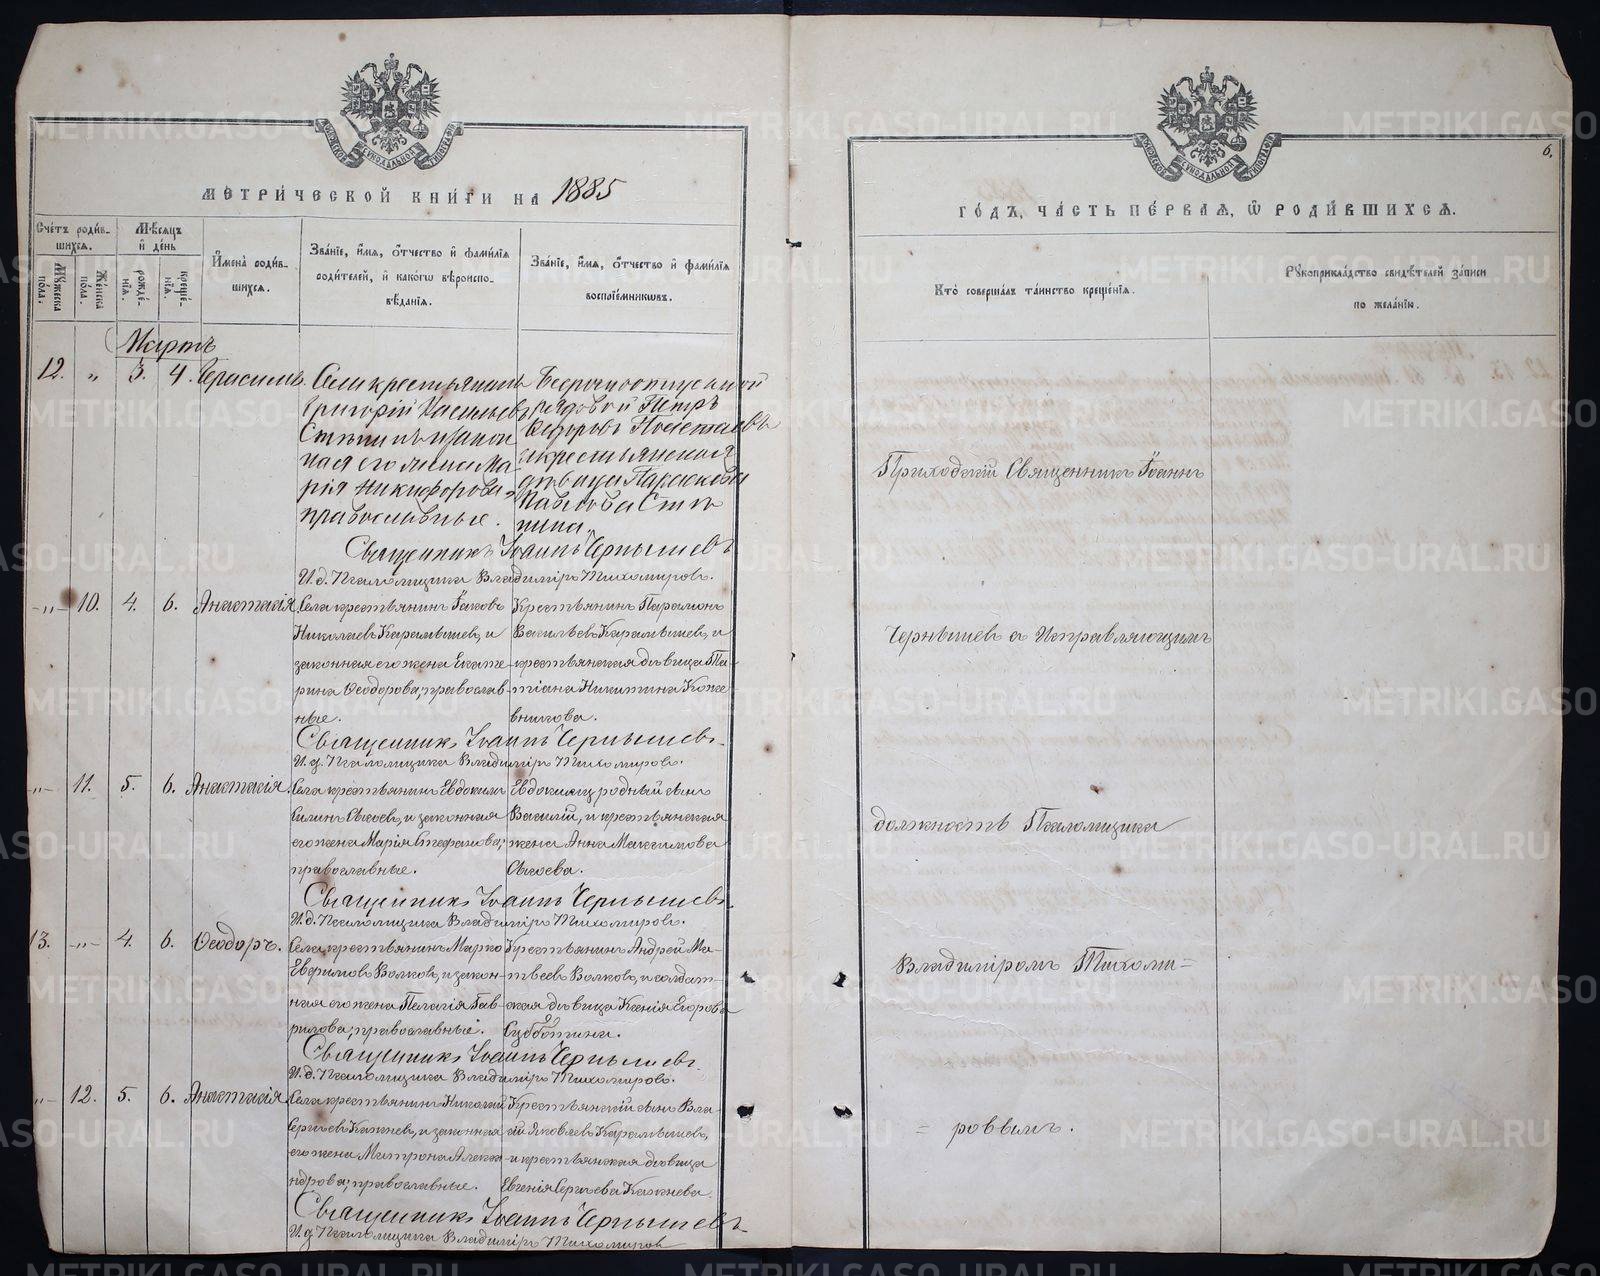 МЕТРИЧЕСКОЙ КНИГИ НА 1885
Счетъ родив-
шихся.
Мужеска
пола.
Женска
пола.
Мѣсяцъ
и день
рожде-
нія.
креще-
нія.
Имена родив-
шихся.
Званіе, имя, отчество и фамилія
родителей, и какого вѣроиспо-
вѣданія.
Званіе, имя, отчество и фамилія
воспріемниковъ.
Мартъ
12. " 3. 4. Герасимъ.
Села крестьянинъ
Григорій Васильевъ
Стѣпинъ и закон
ная его жена Ма-
рія Никифорова,
православные.
Безсрочноотпускной
рядовой Петръ
Ѳедоровъ
и крестьянская
дѣвица Параскева
Павлова Стѣ
пина.
Священникъ Іоаннъ Чернышевъ
И. д. Псаломщика Владиміръ Тихомировъ.
-"- 10. 4. 6. Анастасія
Села крестьянинъ Іаковъ
Николаевъ Карамышевъ, и
законная его жена Екате-
рина Ѳеодорова; православ-
ные.
Крестьянинъ Парамонъ
Васильевъ Карамышевъ, и
крестьянская дѣвица Та-
тіана Никитина Коже
вникова.
Священникъ Іоаннъ Чернышевъ.
И. д. Псаломщика Владиміръ Тихомировъ.
-"- 11. 5. 6. Анастасія.
Села крестьянинъ Евдокимъ
и законная
его жена Марія Стефанова;
православные.
Евдокима родный сынъ
Василій, и крестьянская
жена Анна Максимова
Священникъ Іоаннъ Чернышевъ.
И. д. Псаломщика Владиміръ Тихомировъ.
13. -"- 4. 6. Ѳеодоръ.
Села крестьянинъ Марко
Евфимовъ Волковъ, и закон-
ная его жена Пелагія Гав-
рилова; православные.
Крестьянинъ Андрей Ма-
твеевъ Волковъ, и солдат-
ская дѣвица Ксенія Егорова
Субботина.
Священникъ Іоаннъ Чернышевъ.
И. д. Псаломщика Владиміръ Тихомировъ.
-"- 12. 5. 6. Анастасія
Села крестьянинъ Николай
Сергѣевъ Кажневъ, и законная
его жена Матрона Алекса-
ндрова; православные.
Крестьянскій сынъ Вла-
сій Яковлевъ Карамышевъ,
и крестьянская дѣвица
Евгенія Сергѣева Кажнева.
Священникъ Іоаннъ Чернышевъ
И. д. Псаломщика Владиміръ Тихомировъ
6.
ГОДЪ, ЧАСТЬ ПЕРВАЯ, Ѡ РОДИВШИХСЯ.
Кто совершалъ таинство крещенія.
Рукоприкладство свидѣтелей записи
по желанію.
Приходскій Священникъ Іоаннъ
Чернышевъ съ Исправляющимъ
должность Псаломщика
Владиміромъ Тихоми=
= ровымъ.
METRIKI.GASO-URAL.RU